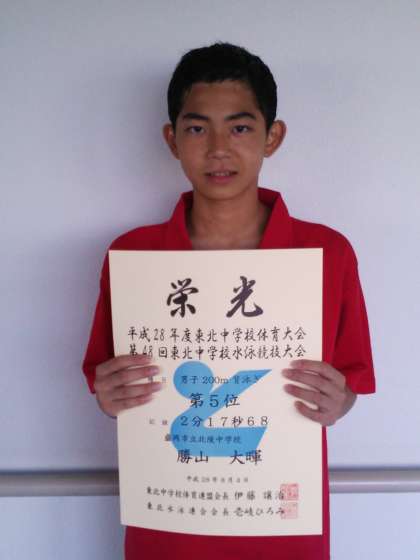 栄光
平成28年度東北中学校体育大会
第48回東北中学校水泳競技大会
種目 男子200m背泳ぎ
第5位
記録 2分17秒68
盛岡市立北陵中学校
勝山 大暉
平成28年8月
東北中学校体育連盟会長 伊藤 譲治
東北水泳連合会会長 壱岐ひろみ